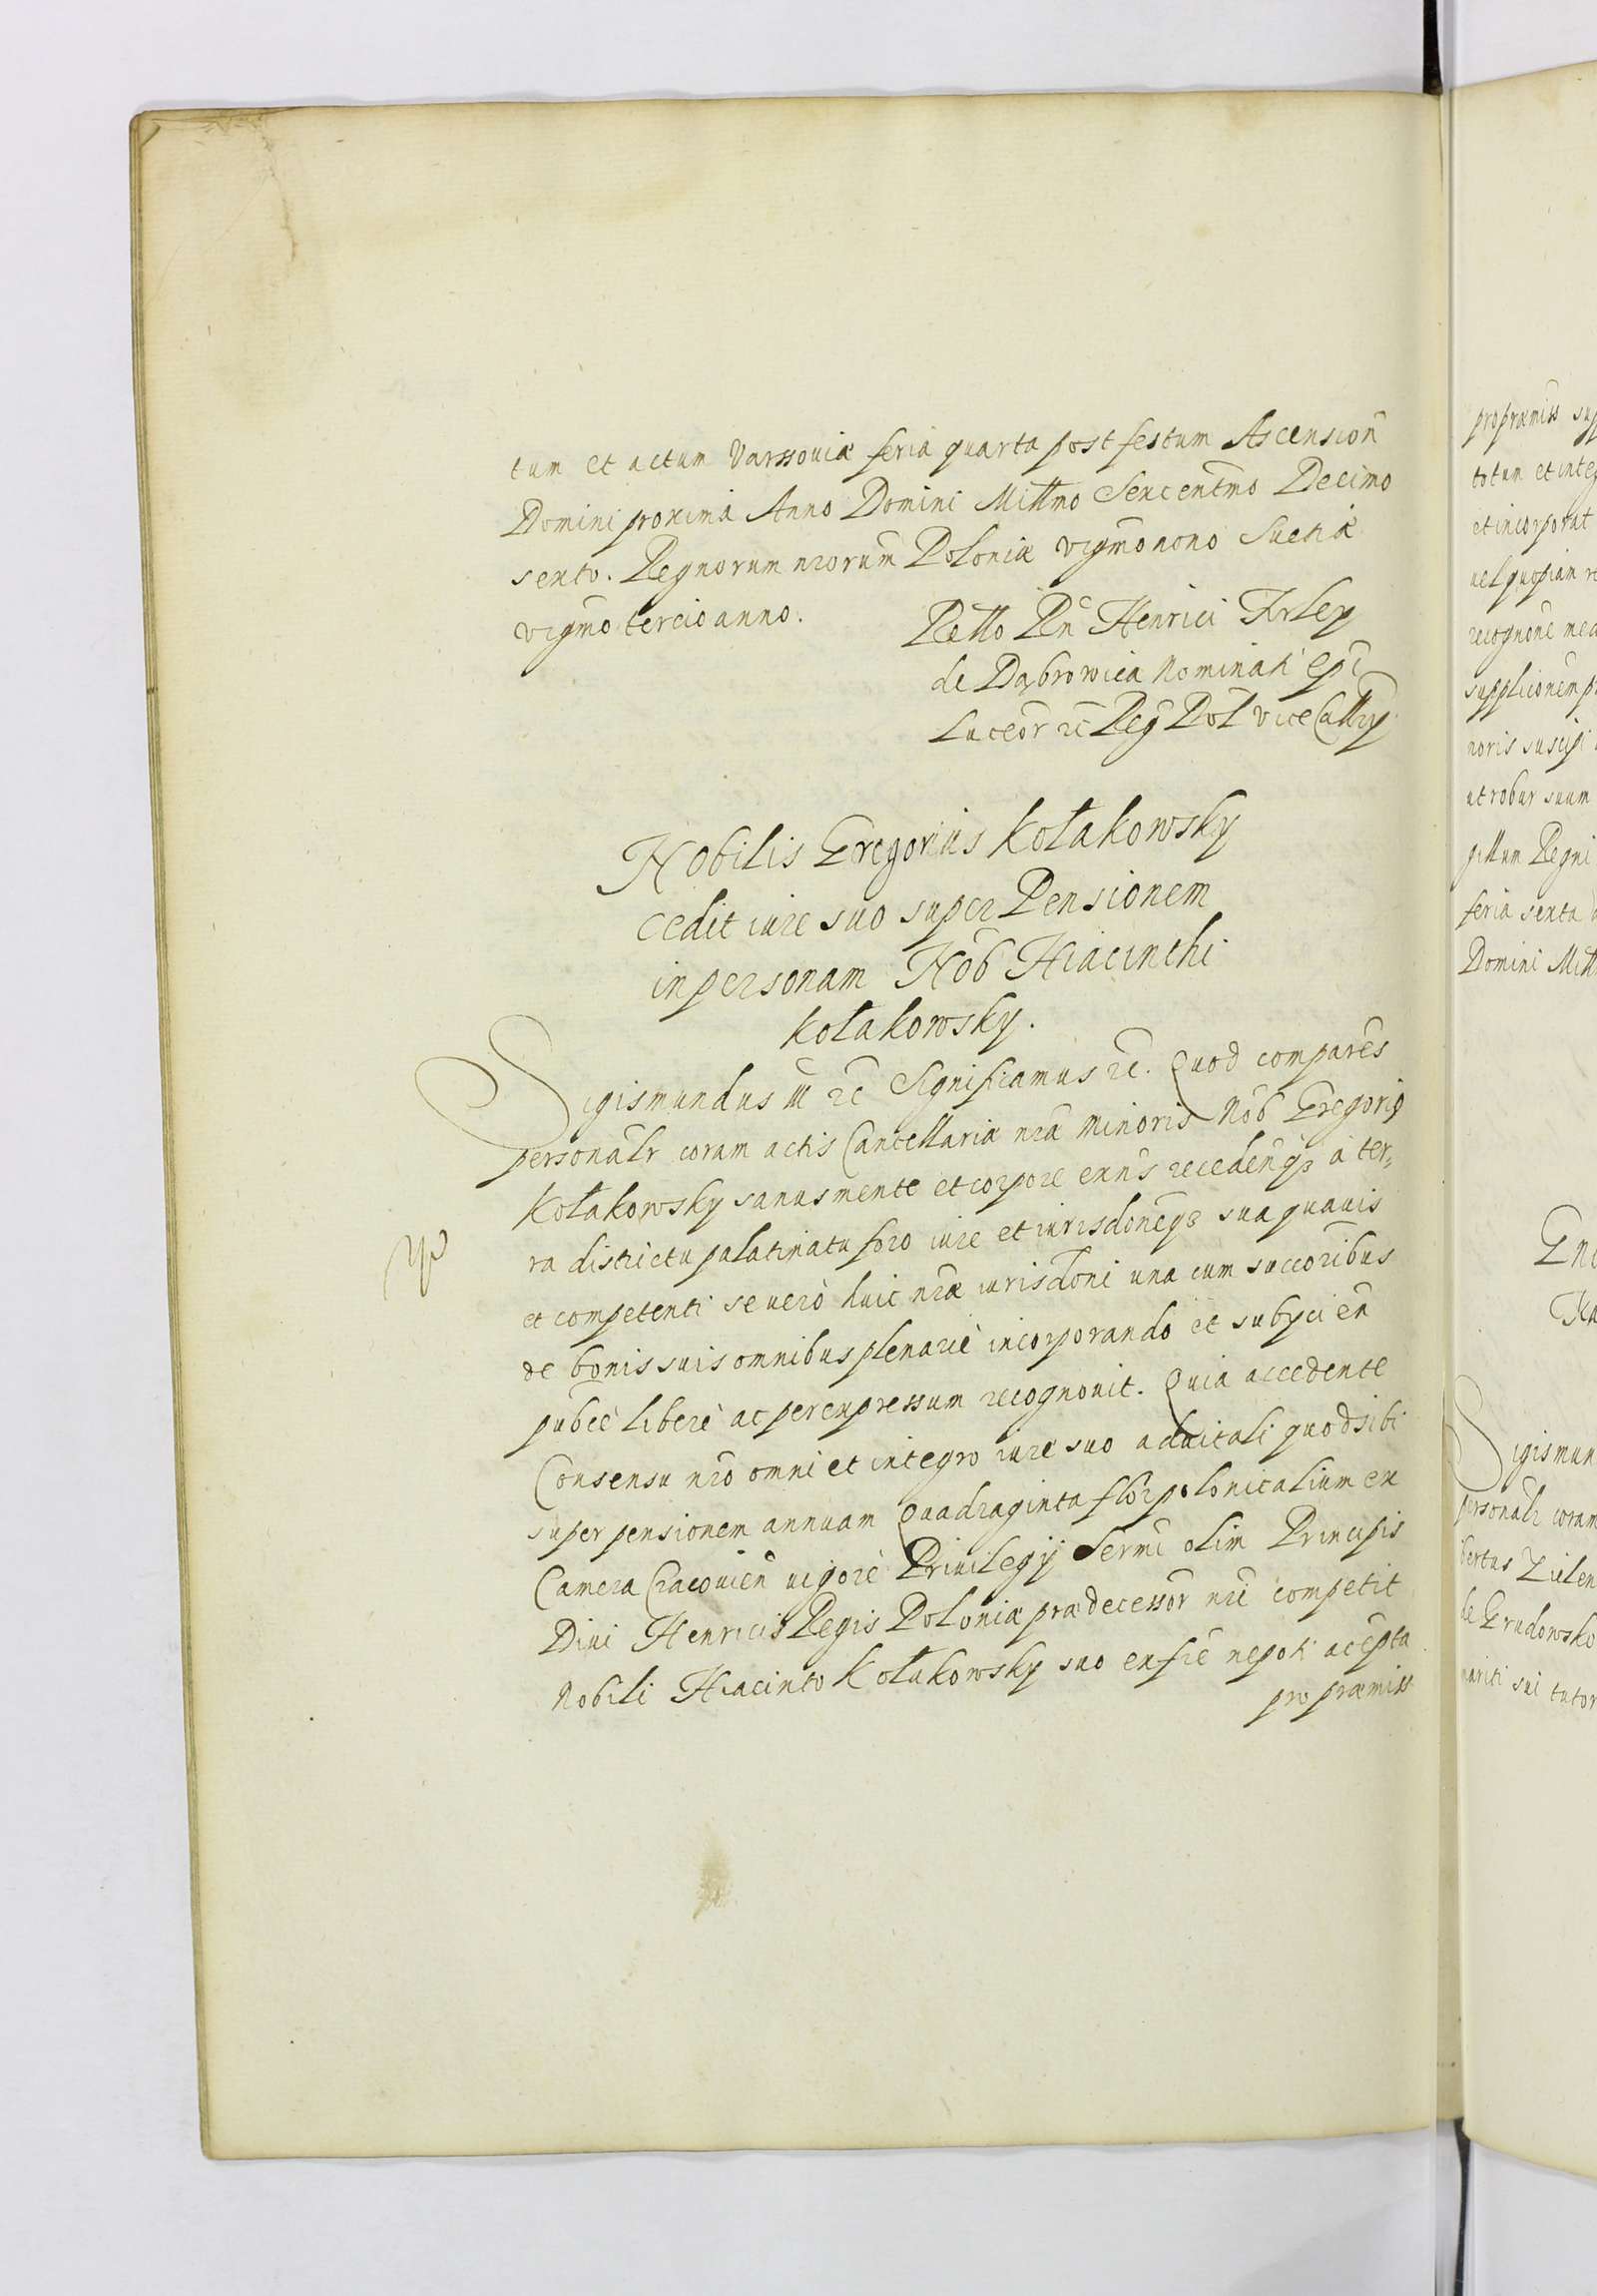 tum et actum Varssouiæ feria quarta post festum Ascension̄
Domini proxima Anno Domini Millmo Sexcentm̄o Decimo
sexto. Regnorum nrorum Poloniæ vigm̄o nono Suetiæ
vigm̄o tercio anno.
Rello Rn̄ Henrici Firley
de Dąbrowica Nominati Ep̄i
Luceor̄ &c Reḡ Pol viceCallrij
Nobilis Gregorius Kołakowsky
cedit iure suo super Pensionem
in personam Nob̄ Hiacinthi
Kołakowsky.
Sigismundus III &c Significamus &c. Quod comparēs
personalr̄ coram actis Cancellariæ nrā minoris Nob̄ Gregoriꝰ
Kołakowsky sanus mente et corpore exn̄s recedenꝗꝫ à ter=
ra districtu palatinatu foro iure et iurisdonēꝗꝫ sua quauis
et competenti se uerò huic nr̄æ iurisdoni una cum succoribus
de bonis suis omnibus plenariè incorporando et subyciēn̄
pubcè liberè ac per expressum recognouit. Quia accedente
Consensu nr̄o omni et integro iure suo aduitali quod sibi
super pensionem annuam Quadraginta flor̄ polonicalium ex
Camera Cracouien̄ uigore Priuilegij Sermi olim Principis
Diui Henrici Regis Poloniæ prædecessor̄ nrī competit
Nobili Hiacinto Kołakowsky suo ex fr̄e nepoti accepta
pro præmiss
pro præmiss sup
totum et integ
et incorporat
uel quopiam re
recognone mea
supplicionem pr
noris suscipi
ut robur suum
gillum Regni
feria sexta
Domini Mill
Sigismun
personalr̄ coram
bertus Zielen
de Grudowsko
mariti sui tutor